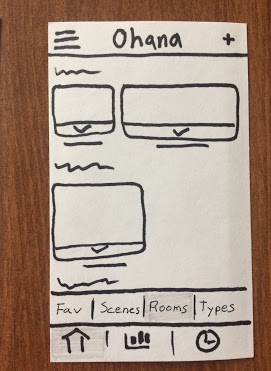 Ohana +
Fav Scenes Rooms Types